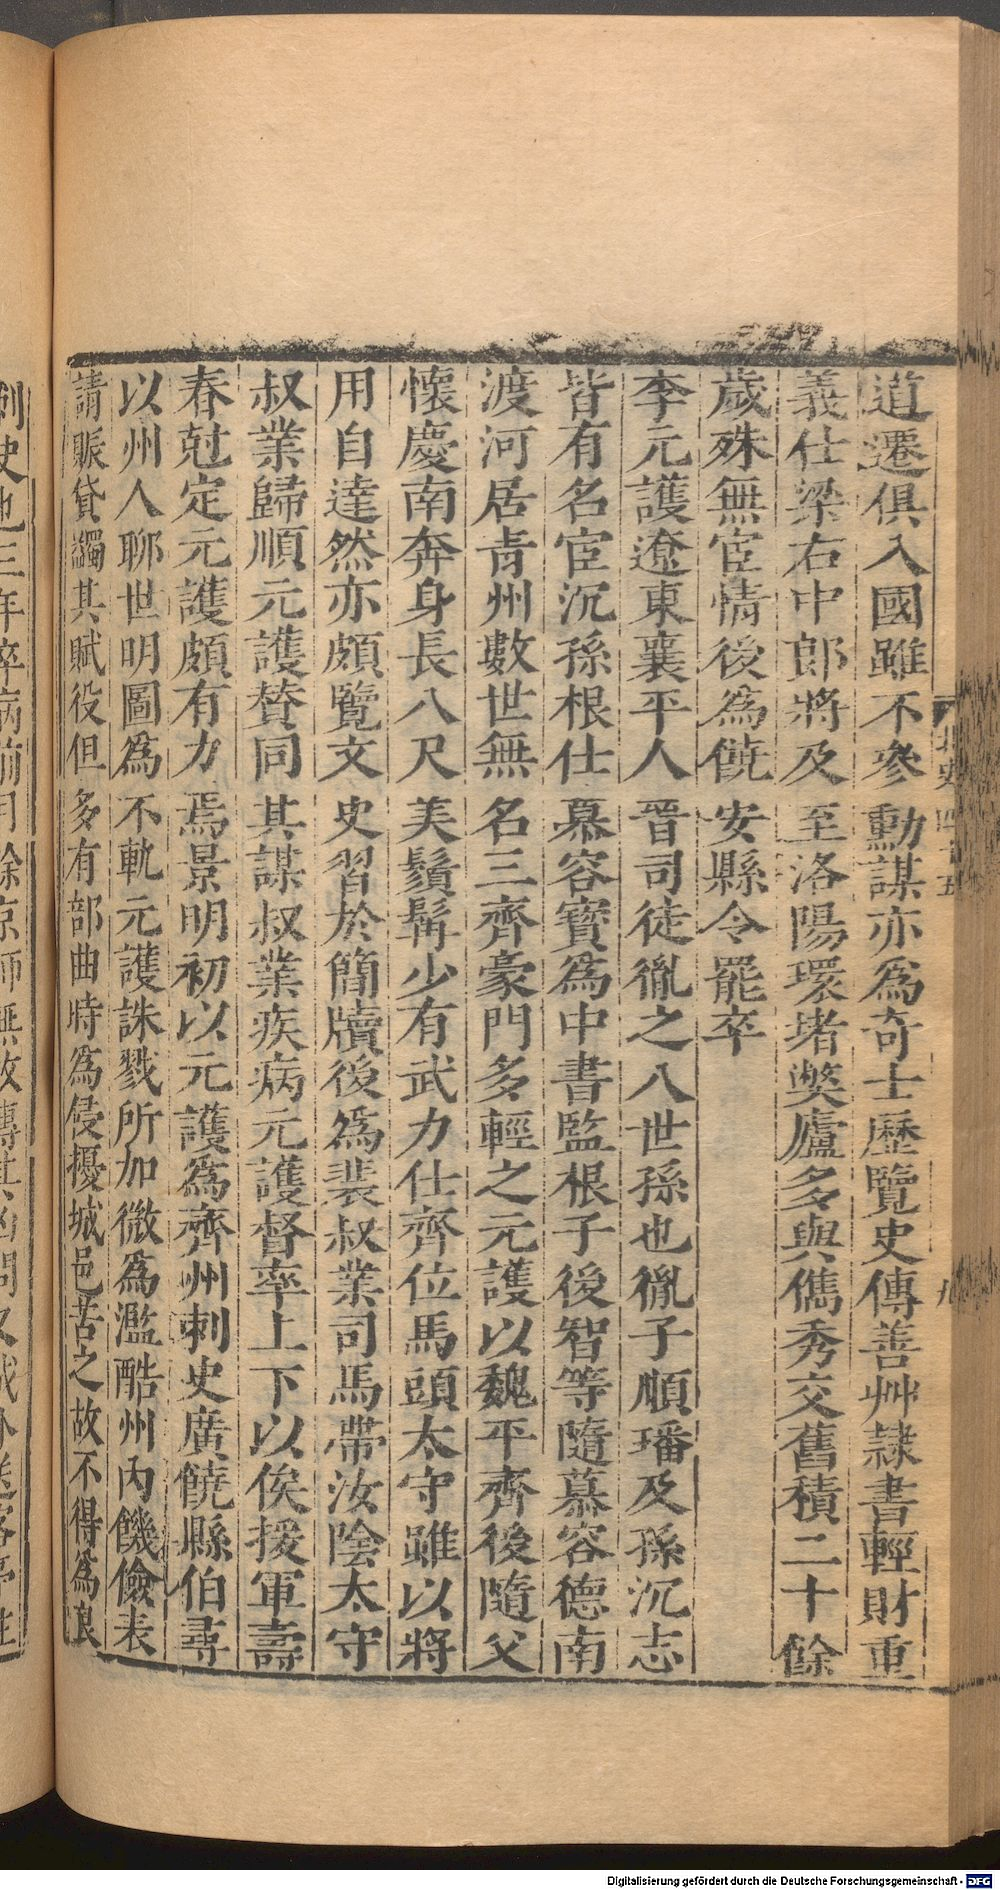 道遷俱入國雖不參勳謀亦爲奇士歷覽史傳善艸隷書輕財重
義仕梁右中郎將及至洛陽環堵獘廬多與儁秀交舊積二十餘
歲殊無宦情後爲饒安縣令罷卒
李元護遼東襄平人晉司徒胤之八世孫也胤子順璠及孫沉志
皆有名宦沉孫根仕慕容寶爲中書監根子後智等隨慕容德南
渡河居青州數世無名三齊豪門多輕之元護以魏平齊後隨父
懷慶南奔身長八尺美鬚髯少有武力仕齊位馬頭太守雖以將
用自達然亦頗覽文史習於簡牘後爲裴叔業司馬帶汝陰太守
叔業歸順元護賛同其謀叔業疾病元護督率上下以俟援軍壽
春尅定元護頗有力焉景明初以元護爲齊州刺史廣饒縣伯尋
以州人聊世明圖爲不軌元護誅戮所加微爲濫酷州內饑儉表
請賑貸蠲其賦役但多有部曲時爲侵擾城邑苦之故不得爲良
刺史也三年卒病前月餘京師無故傳其凶問又城外送客亭柱
北史四十五
九
Digitalisierung gefördert durch die Deutsche Forschungsgemeinschaft - DFG